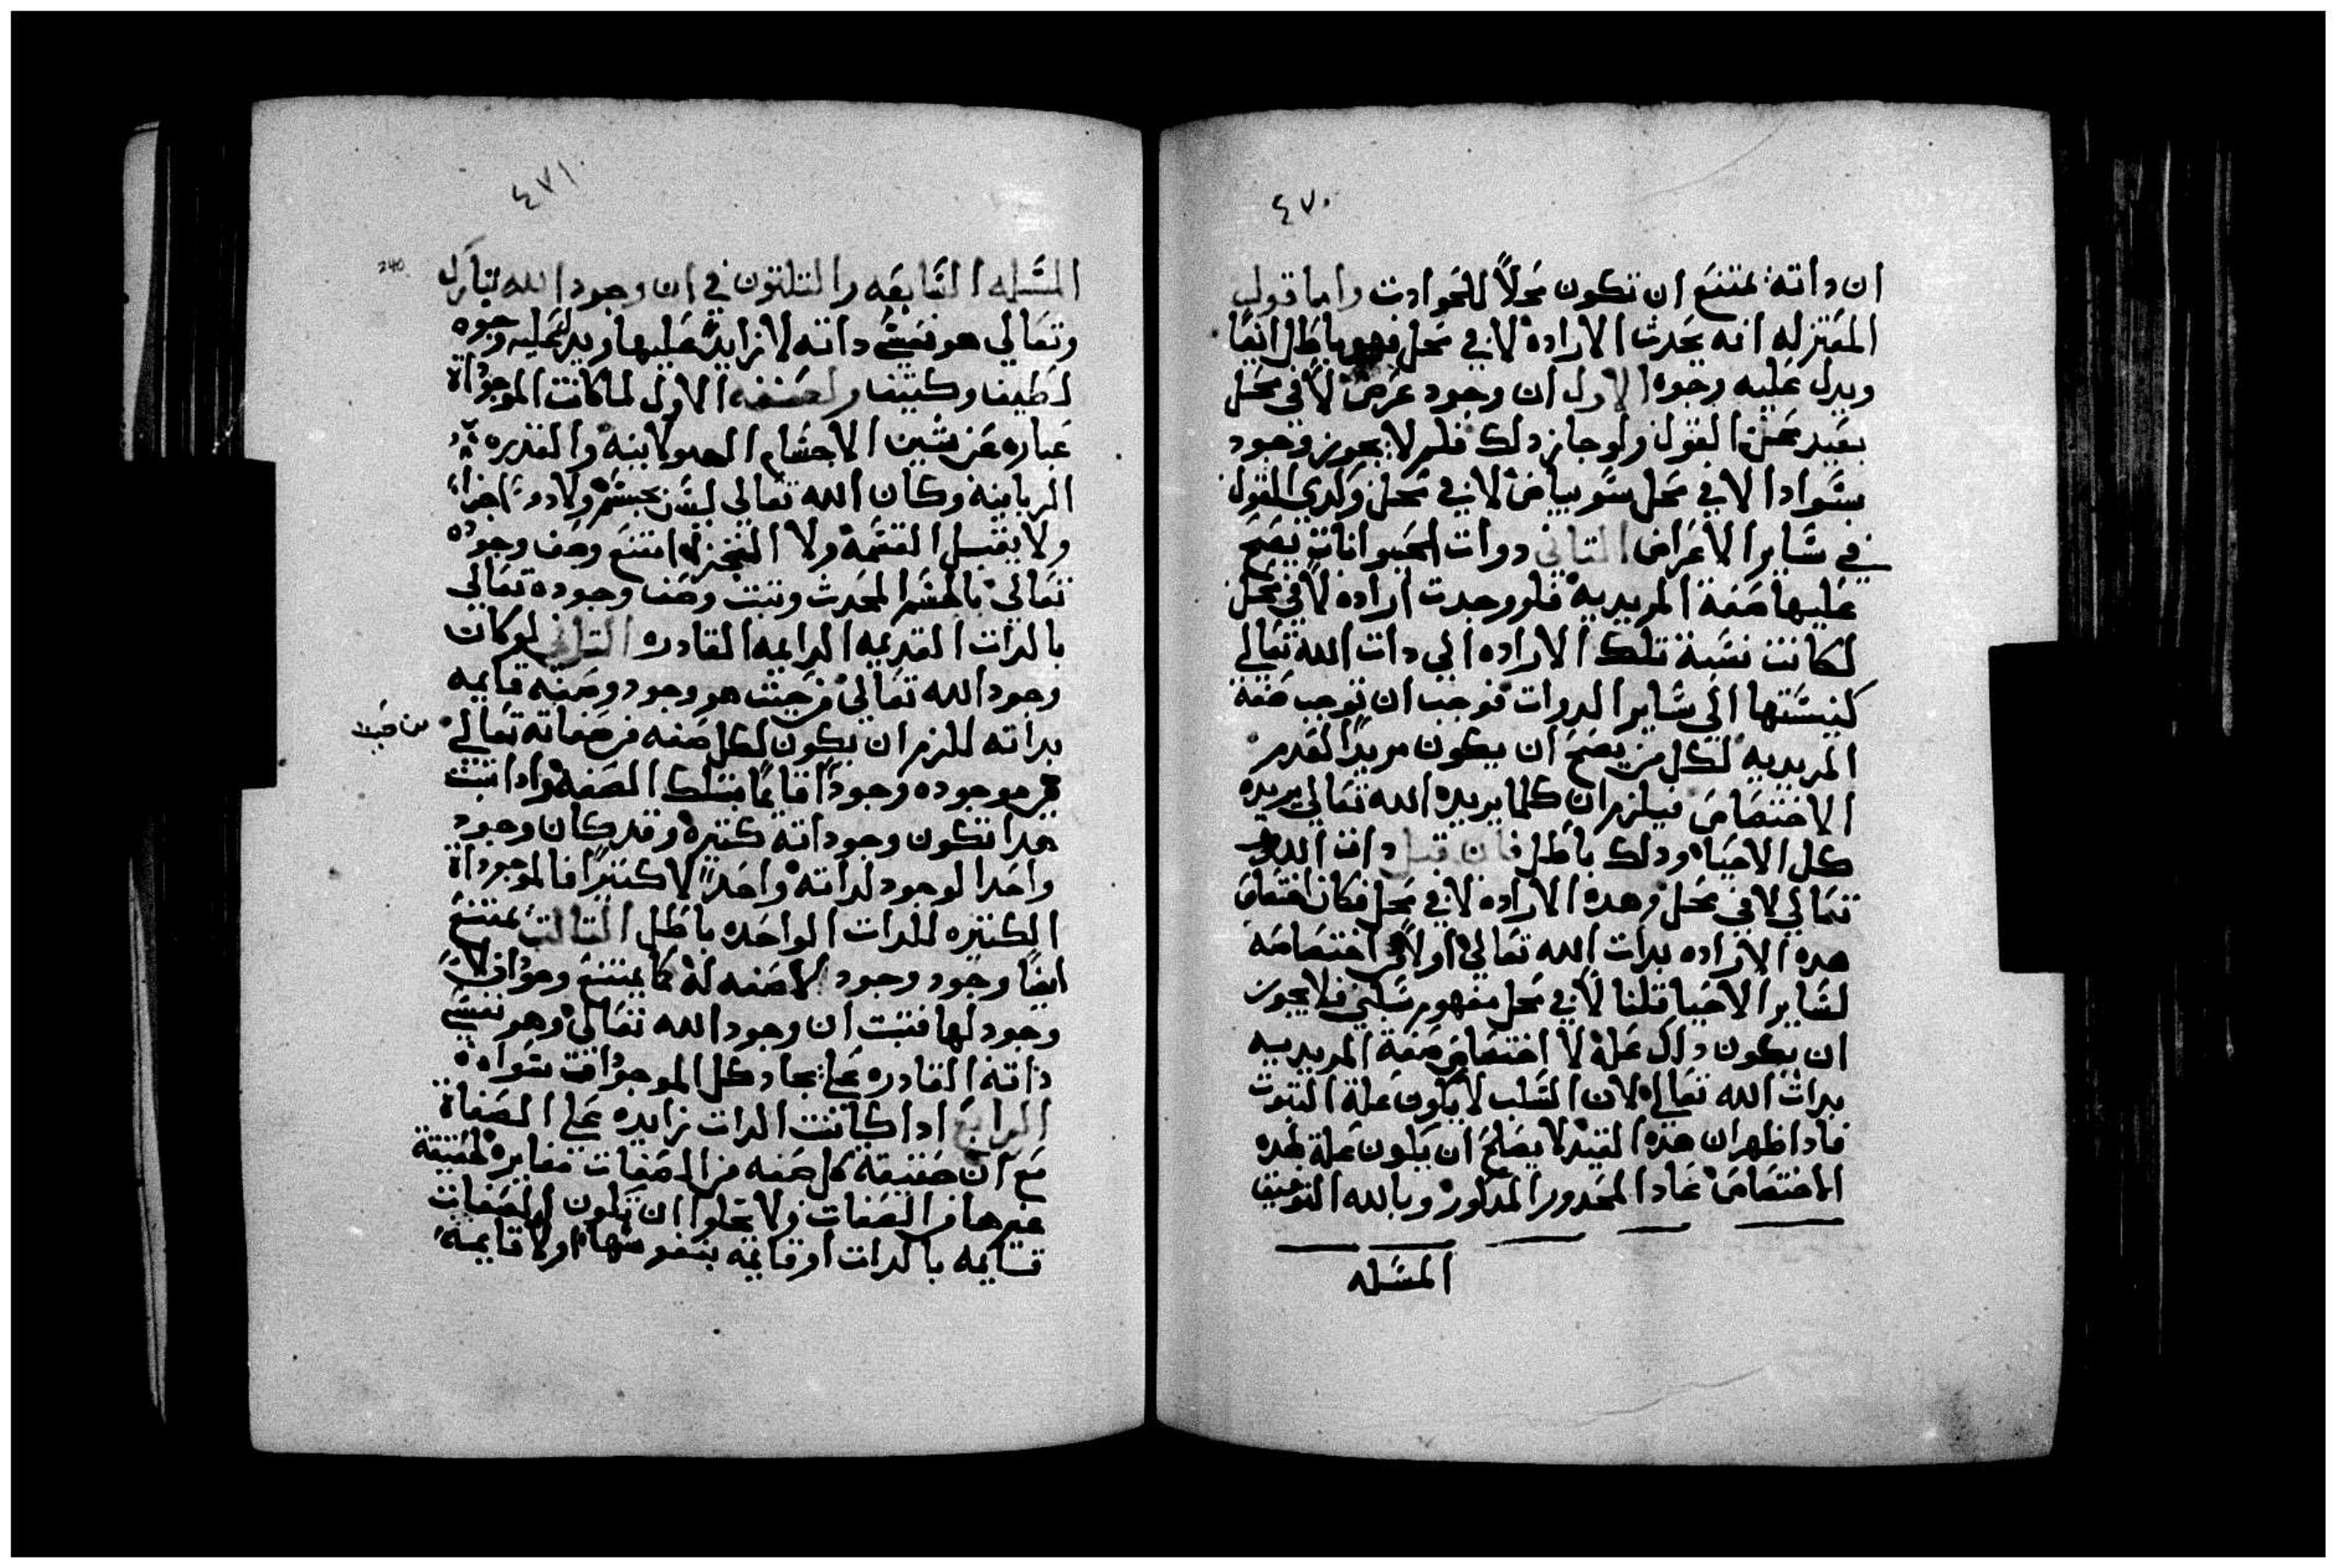 ٤٧٠
ان داته يمتنع ان تكون محلاً للحوادت واما قول
المعتزله انه يحدث الاراده لا في محل فهو باطل ايضا
ويدل عليه وجوه الاول ان وجود عرض لا في محل
بعيد عن القول ولو جاز دلك فلم لا يجوز وجود
سواد لا في محل وبياض لا في محل وكدى القول
في ساير الاعراض التاني دوات الحيوانات يصح
عليها صفة المريديه فلو وجدت اراده لا في محل
لكانت نسبة تلك الاراده الى دات الله تعالي
كنسبتها الي ساير الدوات فوجب ان توجب صفة
المريديه لكل من يصح ان يكون مريدا لعدم
الاختصاص فيلزم ان كلما يريده الله تعالي يريده
كل الاحياء ودلك باطل فان قيل دات الله
تعالي لا في محل وهده الاراده لا في محل فكان اختصاص
هده الاراده بدات الله تعالي اولا من اختصاصه
لساير الاحيا قلنا لا في محل مفهوم سلبي فلا يجوز
ان يكون داك علة لاختصاص صفة المريديه
بدات الله تعالي لان السلب لا يكون علة التبوت
فادا ظهر ان هدا القيد لا يصلح ان يكون علة لهده
الاختصاص عاد المحدور المدكور وبالله التوفيق
المسله
٤٧١
240
المسله السابعه والتلتون في ان وجود الله تبارك
وتعالي هو نفس داته لا زايد عليها ويدل عليه وجوه
لطيف وكتيف الاول لما كانت الموجوداة
عباره عن شين الاجسام الهيولانيه والقدره
الربانيه وكان الله تعالي ليس بجسم ولا دو اجزاء
ولا يقبل القسمة ولا التجزي امتنع وصف وجوده
تعالي بالجسم المحدث وتبت وصف وجوده تعالي
بالدات القديمه الدايمه القادره التاني لو كان
وجود الله تعالي من حيث هو وجود وصفه قايمه
بداته للزم ان يكون لكل صفه من صفاته تعالي
موجوده وجودا قايما بتلك الصفة وادا تبت
هدا تكون وجوداته كتيرة وقد كان وجود
واحدا لوجود لداته واحدا لا كتيرا فالموجوداة
الكتيره للدات الواحده باطل التالت يمتنع
ايضا وجود وجود لا صفه له كما يمتنع وجود دات لا
وجود لها فتبت ان وجود الله تعالي وهو نفس
داته القادره علي ايجاد كل الموجودات سواده
الرابع ادا كانت الدات زايده علي الصفاة
مع ان حقيقة كل صفه من الصفات مغايرة لحقيقة
غيرها من الصفات ولا يخلوا ان تكون الصفات
قايمه بالدات او قايمه بنفوسها او لا قايمة